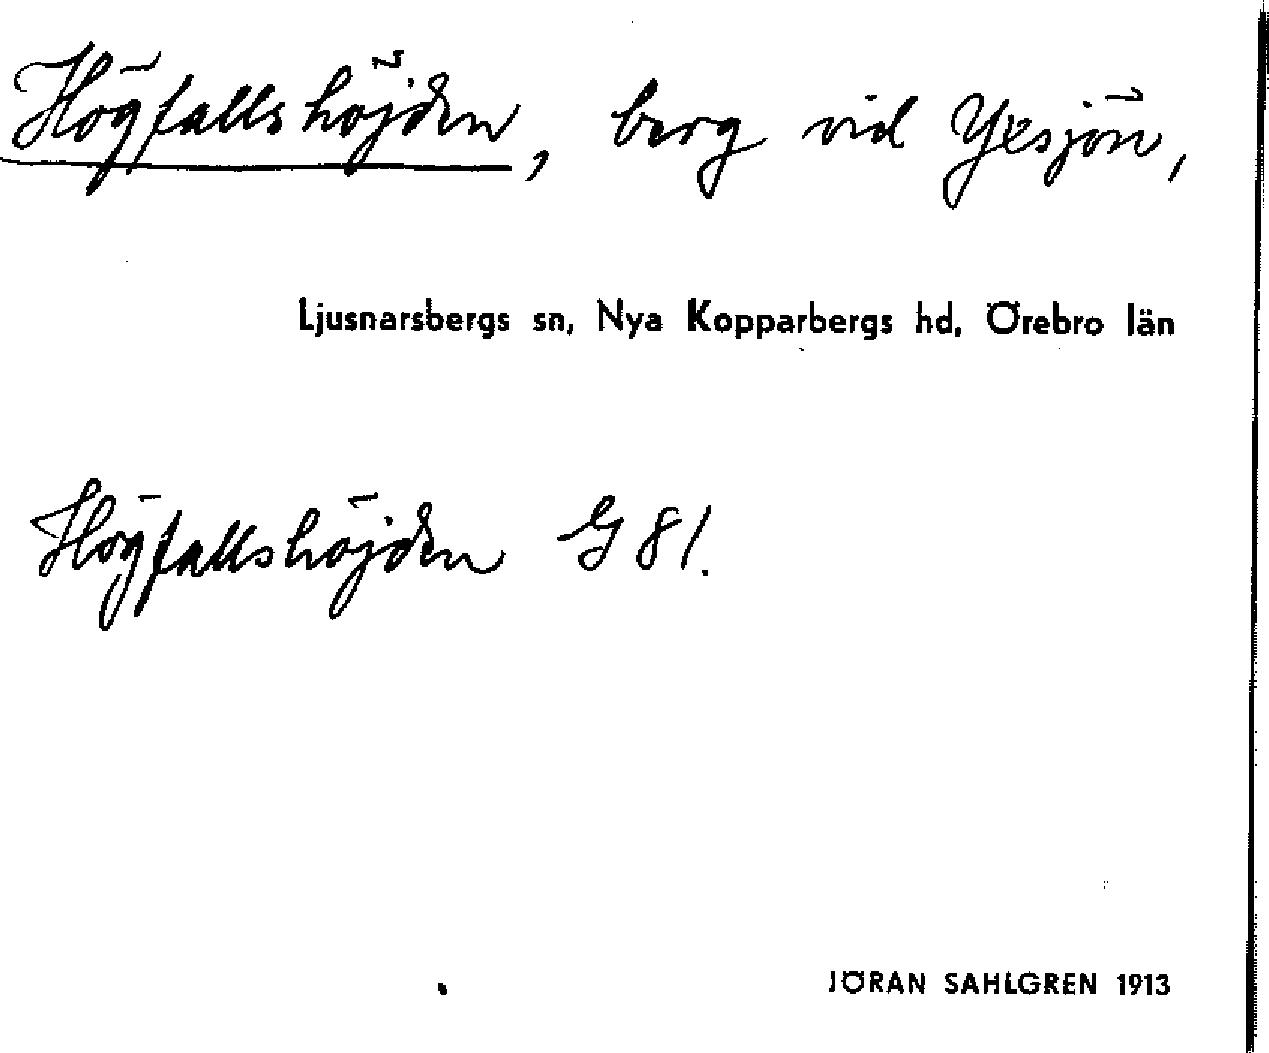 Högfallshöjden, berg vid Yxsjön,
Ljusnarsbergs sn, Nya Kopparbergs hd, Örebro län
Högfallshöjden G 81.
JÖRAN SAHLGREN 1913